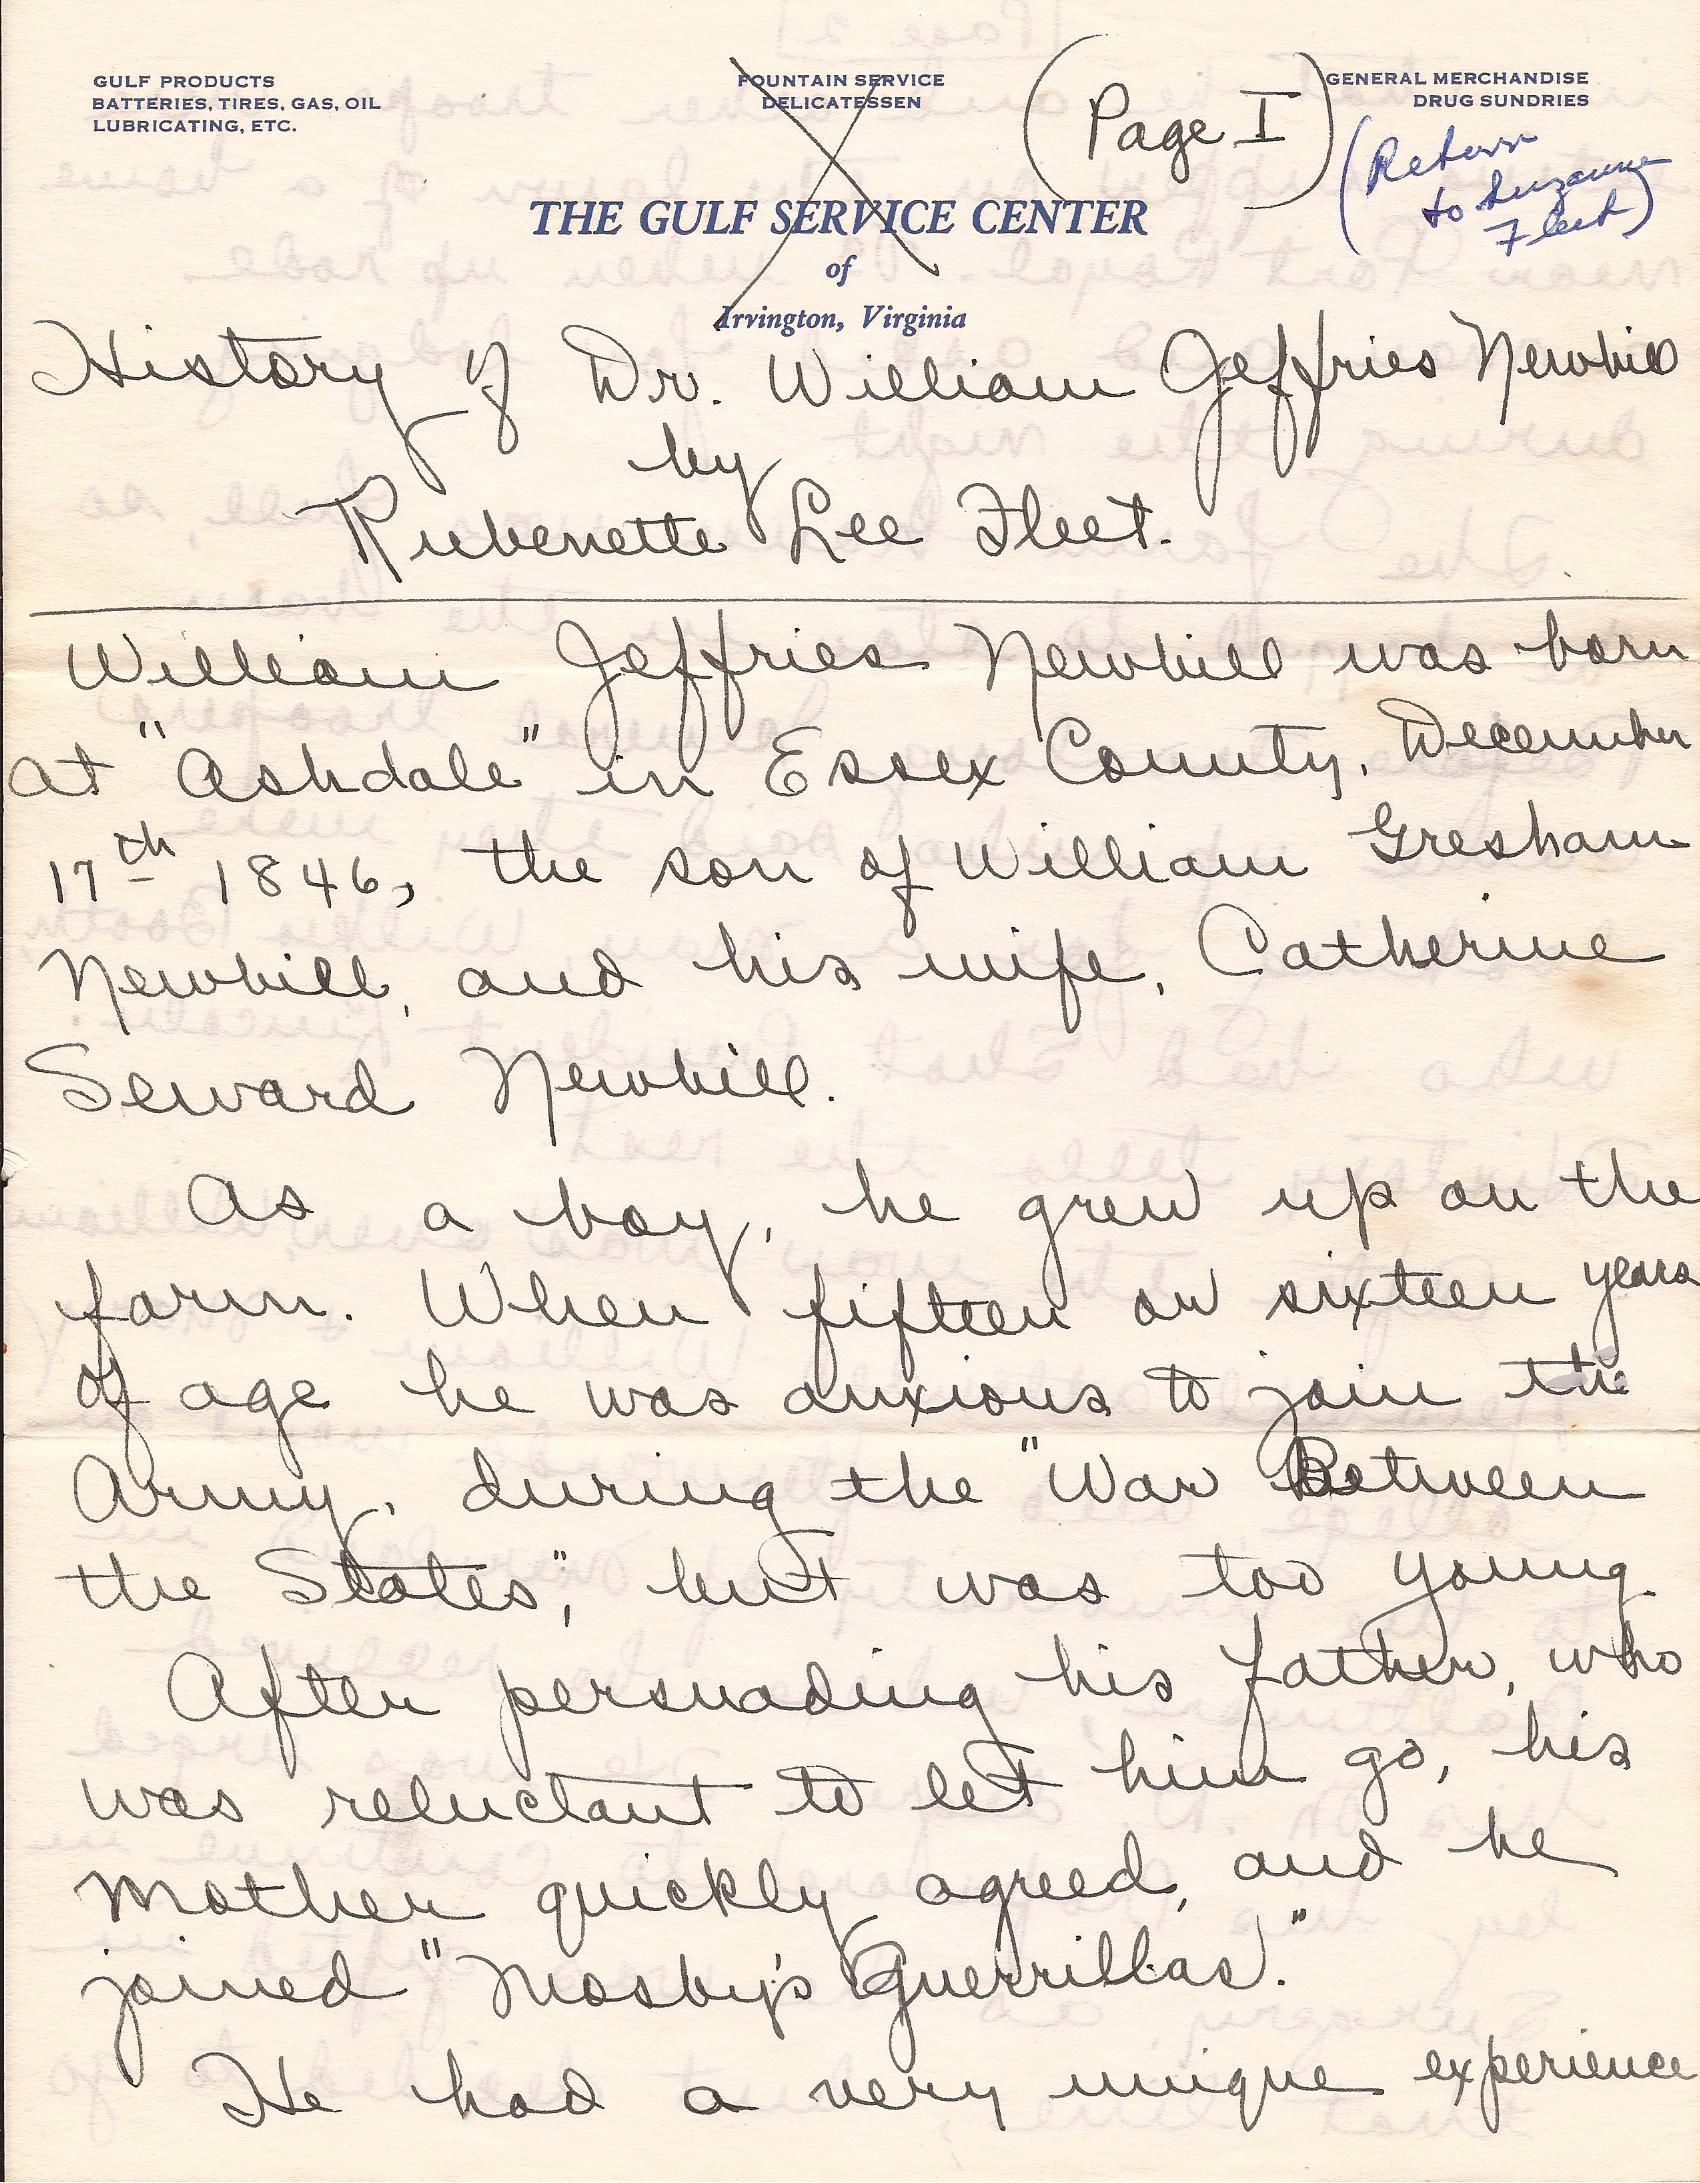 GULF PRODUCTS
BATTERIES, TIRES, GAS, OIL
LUBRICATING, ETC.
FOUNTAIN SERVICE
DELICATESSEN
(Page I)
GENERAL MERCHANDISE
DRUG SUNDRIES
(Return
to Suzanne
Fleet)
THE GULF SERVICE CENTER
of
Irvington, Virginia
History of Dr. William Jeffries Newbill
by
Rubenette Lee Fleet.
William Jeffries Newbill was born
at "Ashdale" in Essex County, December
17th 1846, the son of William Gresham
Newbill, and his wife, Catherine
Seward Newbill.
As a boy, he grew up on the
farm. When fifteen or sixteen years
of age he was anxious to join the
Army, during the "War Between
the States", but was too young.
After persuading his father, who
was reluctant to let him go, his
mother quickly agreed, and he
joined "Mosby's Guerrillas."
He had a very unique experience